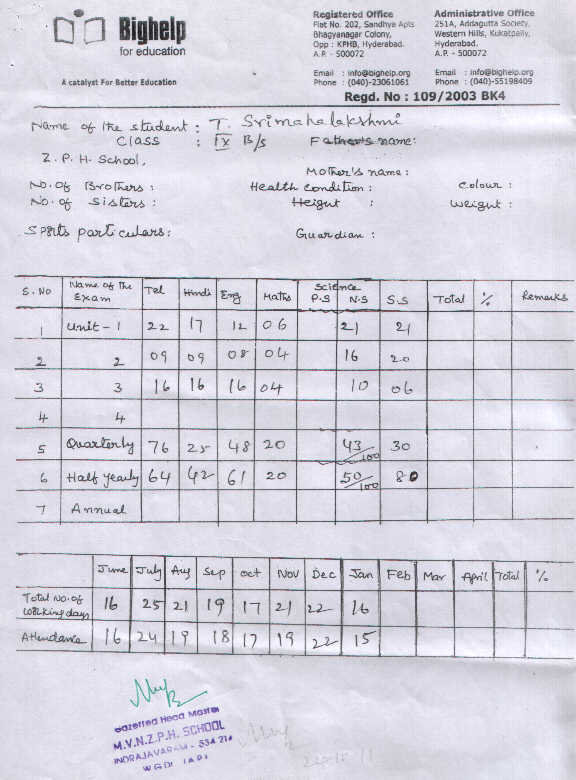 Bighelp
for education
A catalyst For Better Education
Registered Office
Flat No. 202, Sandhya Apts
Bhagyanagar Colony,
Opp : KPHB, Hyderabad.
A.P. - 500072
Email : info@bighelp.org
Phone : (040)-23061061
Administrative Office
251A, Addagutta Society,
Western Hills, Kukatpally,
Hyderabad.
A.P. - 500072
Email : info@bighelp.org
Phone : (040)-55198409
Regd. No : 109/2003 BK4
Name of the student : T. Srimahalakshmi
CLASS : IX B/s Father's name:
Z. P. H. School,
Mother's name :
No. of Brothers : Health Condition : Colour :
No. of Sisters : Height : Weight :
Sports particulars: Guardian :
S. No Name of the Exam Tel Hindi Eng Maths Science P.S N.S S.S Total % Remarks
1 Unit - 1 22 17 12 06 21 21
2 2 09 09 08 04 16 20
3 3 16 16 16 04 10 06
4 4
5 Quarterly 76 25 48 20 43/100 30
6 Half yearly 64 42 61 20 50/100 80
7 Annual
June July Aug Sep Oct Nov Dec Jan Feb Mar April Total %
Total No. of Working days 16 25 21 19 17 21 22 16
Attendance 16 24 19 18 17 19 22 15
Gazetted Head Master
M.V.N.Z.P.H. SCHOOL
INDRAJAVARAM - 534 21